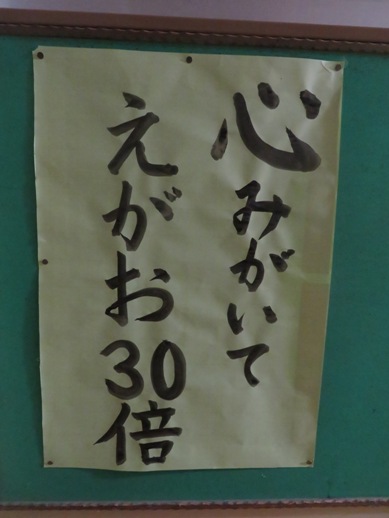 心みがいて
えがお30倍